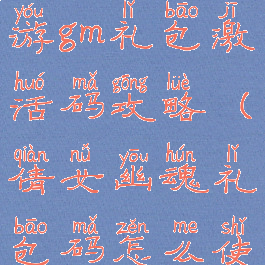 yóu lǐ bāo jī
游gm礼包激
huó mǎ gōng lüè
活码攻略(
qiàn nǚ yōu hún lǐ
倩女幽魂礼
bāo mǎ zěn me shǐ
包码怎么使